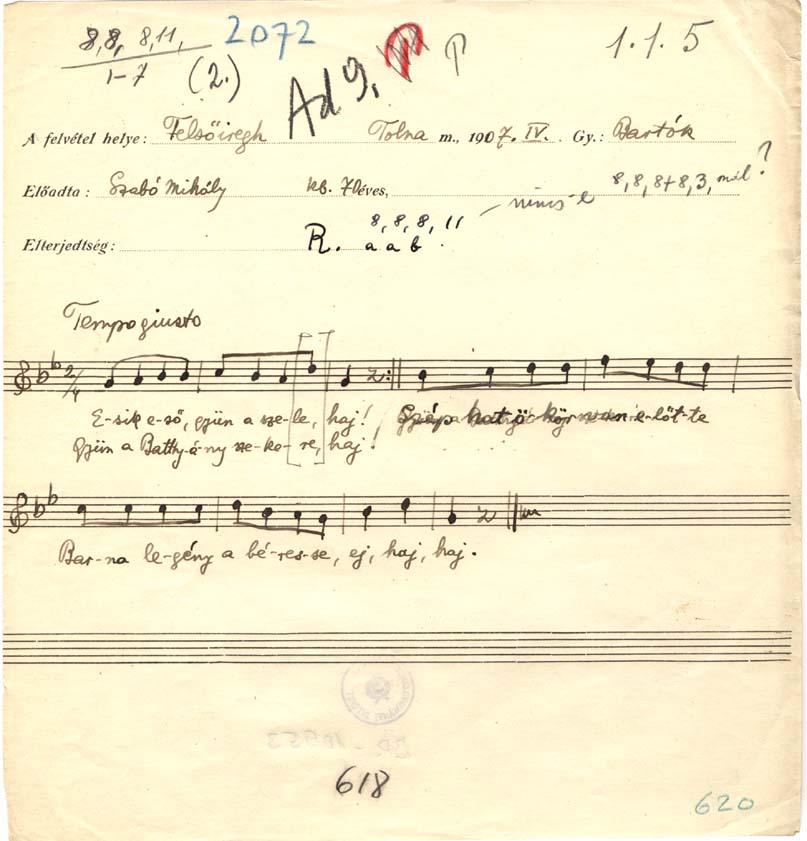 8,8, 8,11, 2072 1.1.5
1-7 (2.) Ad 9, P
A felvétel helye: Felsőiregh Tolna m., 1907. IV. Gy.: Bartók
Előadta: Szabó Mihály kb. 70 éves,
nincs-e 8,8,8+8,3, mál?
8, 8, 8, 11
Elterjedtség: R. a a b
Tempo giusto
2/4
E-sik e-ső, gyün a sze-le, haj! Szép hat ö-kör van e-löt-te
gyün a Batthy-á-ny sze-ke-re, haj!
Bar-na le-gény a bé-res-se, ej, haj, haj.
618
620